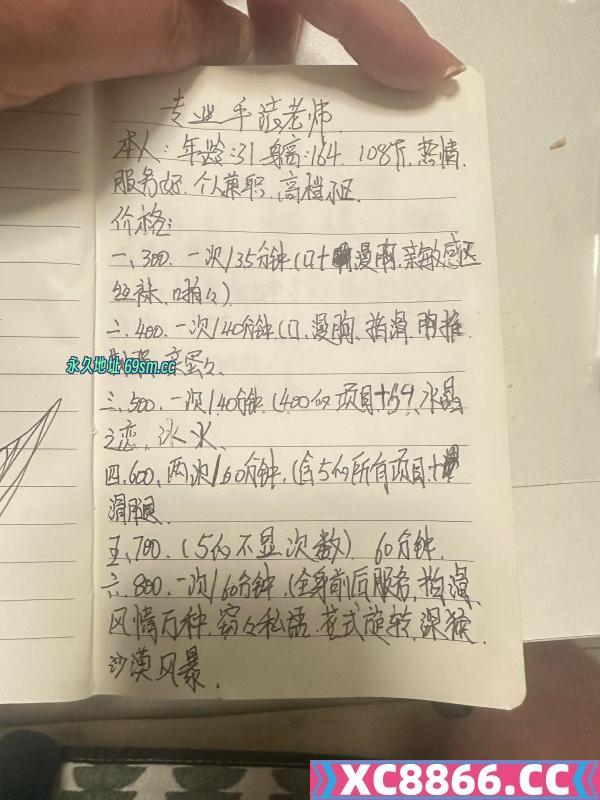 专业手法老师
本人:年龄:31身高:164.108斤,热情.
服务好.个人兼职,高档小区.
价格:
一、300.一次/35分钟(口+漫胸,亲敏感区
丝袜、啪々)
二、400.一次/40分钟(口、漫胸、指滑、胸推
永久地址 69sm.cc
三、500.一次/40分钟(400的项目+59,水晶
之恋,冰火、
四.600、两次/60分钟,(含5的所有项目+
滑腿
五、700.(5的不显次数)60分钟.
六、800.一次/60分钟(全身前后服务、指滑
风情万种、窃々私语、花式旋转,深猴.
沙漠风暴.
XC8866.CC